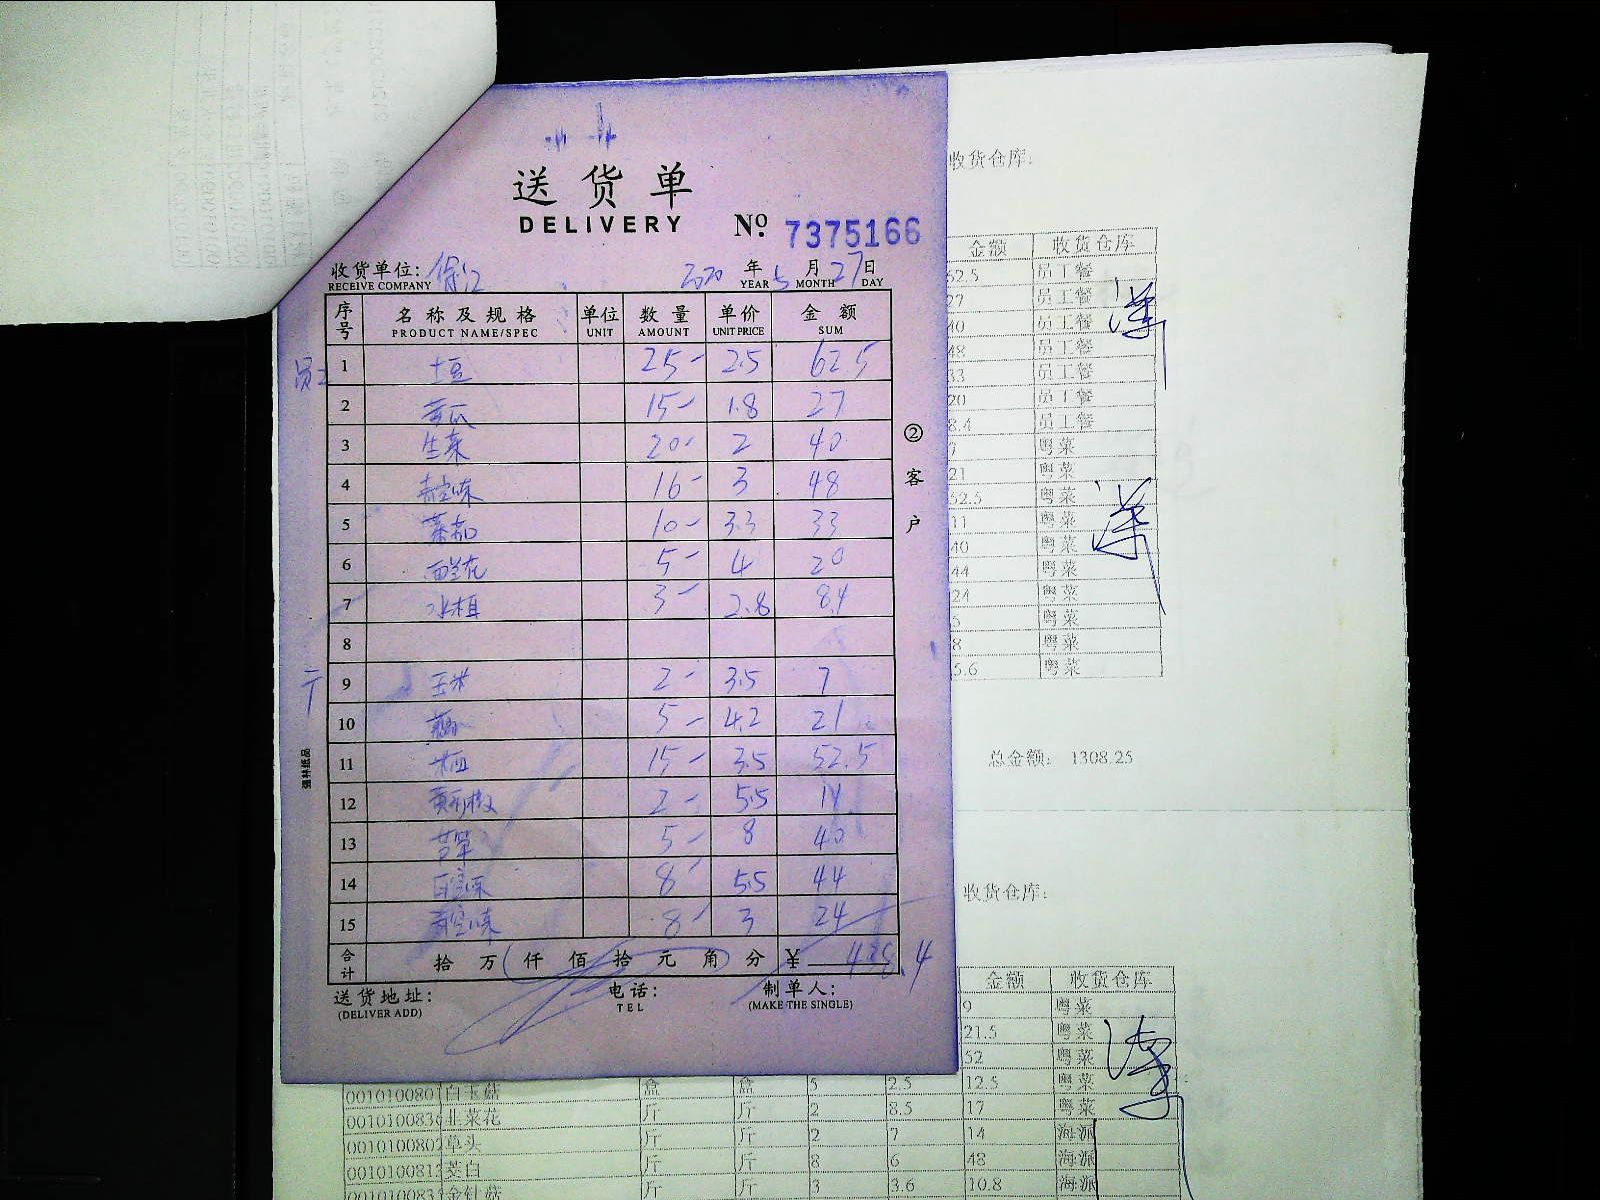 送货单
DELIVERY № 7375166
收货单位: 徐汇 2020 年 5 月 27 日
RECEIVE COMPANY YEAR MONTH DAY
序号 名称及规格 单位 数量 单价 金额
PRODUCT NAME/SPEC UNIT AMOUNT UNIT PRICE SUM
1 土豆 25- 2.5 62.5
2 黄瓜 15- 1.8 27
3 生菜 20- 2 40
4 16- 3 48
5 蕃茄 10- 3.3 33
6 5- 4 20
7 3- 2.8 8.4
8
9 玉米 2- 3.5 7
10 5- 4.2 21
11 15- 3.5 52.5
12 2- 5.5 11
13 5- 8 40
14 8- 5.5 44
15 8- 3 24
合计 拾 万 仟 佰 拾 元 角 分 ¥
送货地址: 电话: 制单人:
(DELIVER ADD) TEL (MAKE THE SINGLE)
②客户
强林纸品
收货仓库:
金额 收货仓库
62.5 员工餐
27 员工餐
40 员工餐
48 员工餐
33 员工餐
20 员工餐
8.4 员工餐
7 粤菜
21 粤菜
52.5 粤菜
11 粤菜
40 粤菜
44 粤菜
24 粤菜
5 粤菜
8 粤菜
5.6 粤菜
总金额: 1308.25
收货仓库:
金额 收货仓库
9 粤菜
21.5 粤菜
52 粤菜
白玉菇 盒 盒 5 2.5 12.5 粤菜
韭菜花 斤 斤 2 8.5 17 粤菜
草头 斤 斤 2 7 14 海派
茭白 斤 斤 8 6 48 海派
金针菇 斤 斤 3 3.6 10.8 海派